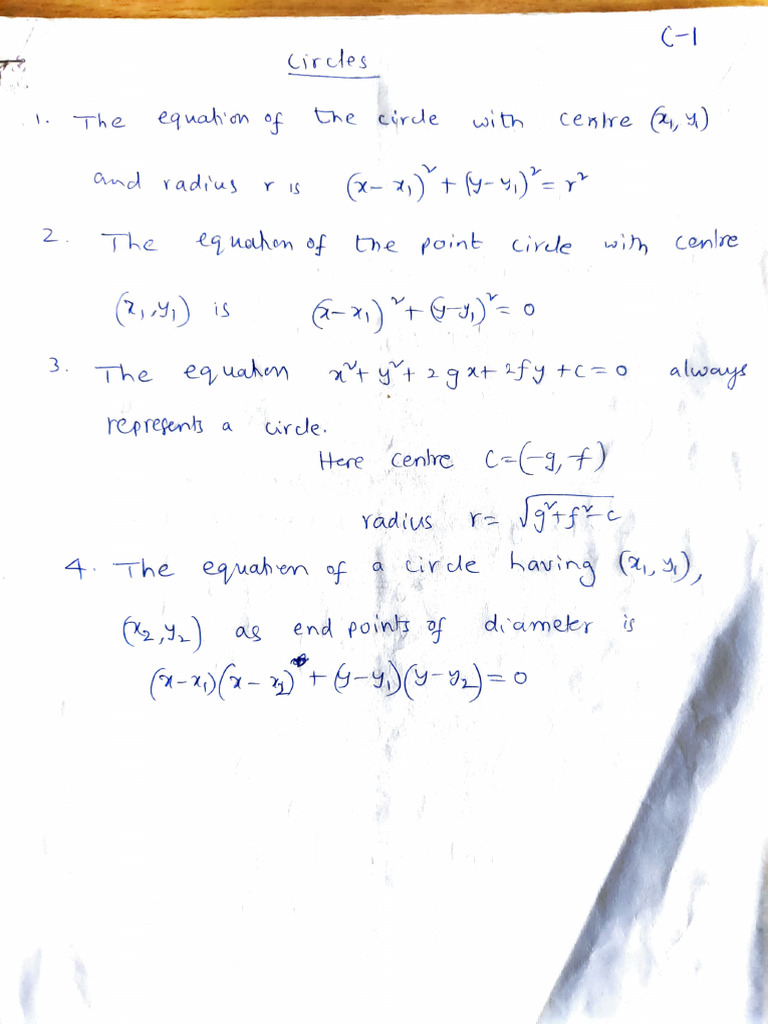 C-1
Circles
1. The equation of the circle with centre (x₁, y₁)
and radius r is (x-x₁)² + (y-y₁)² = r²
2. The equation of the point circle with centre
(x₁, y₁) is (x-x₁)² + (y-y₁)² = 0
3. The equation x² + y² + 2gx + 2fy + c = 0 always
represents a circle.
Here centre C = (-g, -f)
radius r = √(g² + f² - c)
4. The equation of a circle having (x₁, y₁),
(x₂, y₂) as end points of diameter is
(x-x₁)(x-x₂) + (y-y₁)(y-y₂) = 0